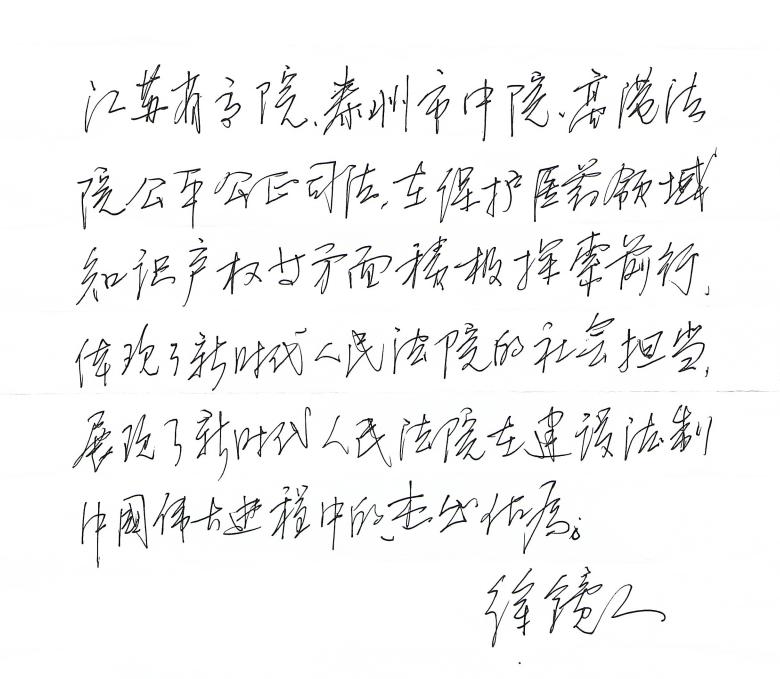 江苏省高院、泰州市中院、高港法
院公平公正司法，在保护医药领域
知识产权方面积极探索前行，
体现了新时代人民法院的社会担当，
展现了新时代人民法院在建设法制
中國伟大进程中的杰出作为。
徐镜人